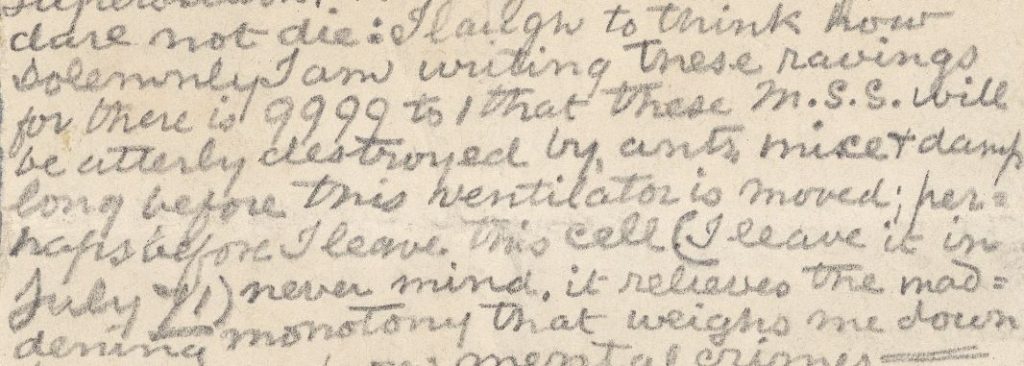 dare not die: I laugh to think how
solemnly I am writing these ravings
for there is 9999 to 1 that these M.S.S. will
be utterly destroyed by, ants, mice + damp
long before this ventilator is moved; per=
haps before I leave this cell (I leave it in
July 71) never mind, it relieves the mad=
dening monotony that weighs me down
mental crimes